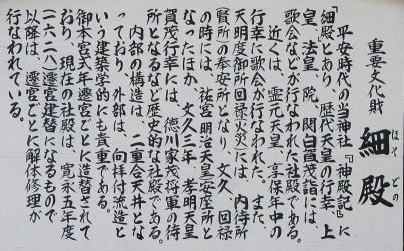 重要文化財
細殿
ほそどの
平安時代の当神社『神殿記』に
「細殿とあり、歴代天皇の行幸、上
皇、法皇、院、関白賀茂詣には、
歌会などが行なわれた社殿である。
近くは、霊元天皇、享保年中の
行幸に歌会が行なわれた。また、
天明度御所回禄(火災)には、内侍所
(賢所)の奉安所となり、文久、回禄
の時には、祐宮(明治天皇)安座所と
なったほか、文久三年、孝明天皇
賀茂行幸には、徳川家茂将軍の待
所となるなど歴史的な社殿である。
内部の構造は、二重合天井とな
っており、外部は、向拝付流造と
いう建築学的にも貴重である。
御本宮式年遷宮ごとに造替されて
おり、現在の社殿は、寛永五年度
(一六二八)遷宮建替になるもので
以降は、遷宮ごとに解体修理が
行なわれている。